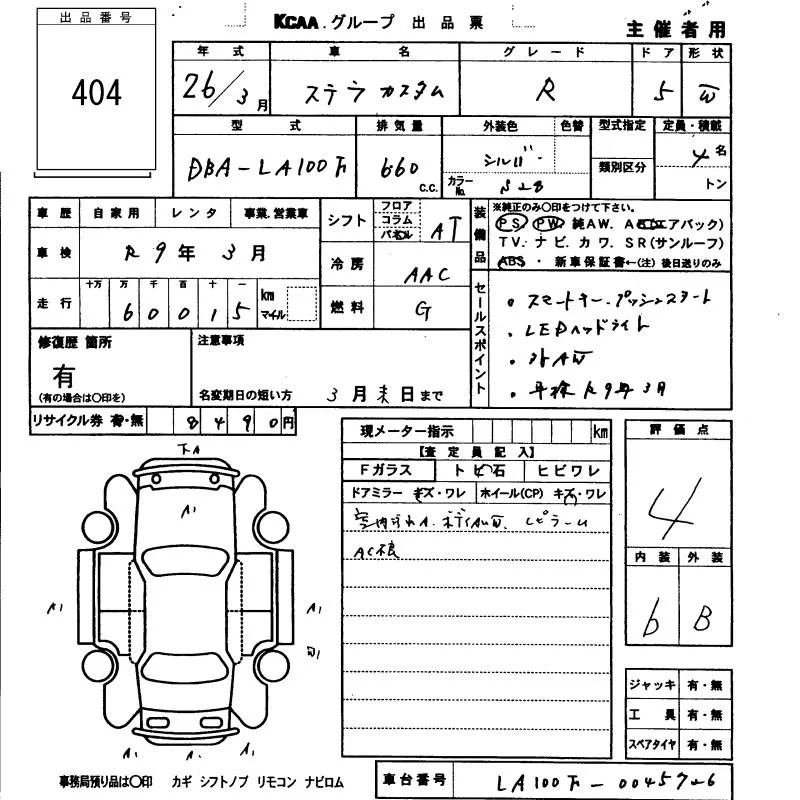 出品番号
404
KCAA.グループ 出品票
主催者用
年式 車名 グレード ドア 形状
26/3月 ステラ カスタム R 5 W
型式 排気量 外装色 色替 型式指定 定員・積載
DBA-LA100F 660 c.c. シルバー 類別区分 4名
カラーNo. S28 トン
車歴 自家用 レンタ 事業.営業車
シフト フロア コラム パネル AT
装備品 ※純正のみ〇印をつけて下さい。
PS PW 純AW. A(エアバック)
TV.ナビ.カワ.SR(サンルーフ)
ABS・新車保証書←(注)後日送りのみ
車検 R9年3月
冷房 AAC
走行 十万 万 千 百 十 一 km マイル
6 0 0 1 5
燃料 G
セールスポイント
・スマートキー.プッシュスタート
・LEDヘッドライト
・外AW
・車検R9年3月
修復歴 箇所
有
(有の場合は〇印を)
注意事項
名変期日の短い方 3月末日まで
リサイクル券 有・無 8490円
現メーター指示 km
【査定員記入】
Fガラス トビ石 ヒビワレ
ドアミラー キズ・ワレ ホイール(CP) キズ・ワレ
AC不良
評価点
4
内装 外装
b B
下A
A1
A1 A1
W1
A1 A1 A1
ジャッキ 有・無
工具 有・無
スペアタイヤ 有・無
事務局預り品は〇印 カギ シフトノブ リモコン ナビロム
車台番号 LA100F-0045726